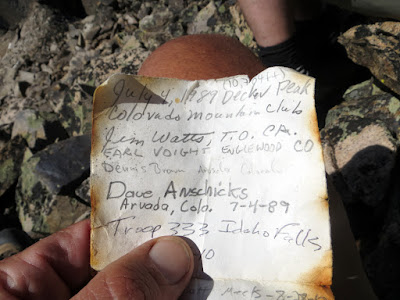 July 4, 1989 Decker Peak
Colorado Mountain Club
Jim Watts, T.O. CA.
EARL VOIGHT ENGLEWOOD CO
Dennis Brown Arvada Colorado
Dave Anschicks
Arvada, Colo. 7-4-89
Troop 333 Idaho Falls